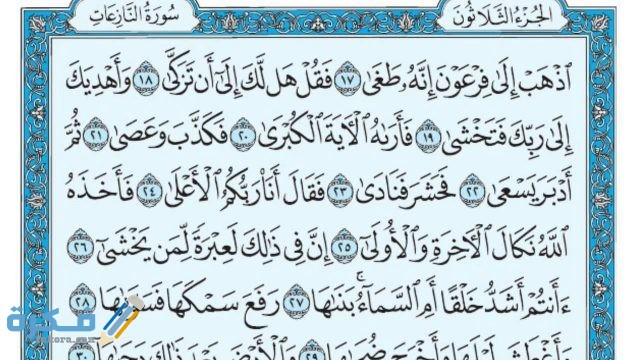 الجُزءُ الثَّلَاثُونَ
سُورَةُ النَّازِعَاتِ
ٱذْهَبْ إِلَىٰ فِرْعَوْنَ إِنَّهُۥ طَغَىٰ ١٧ فَقُلْ هَل لَّكَ إِلَىٰٓ أَن تَزَكَّىٰ ١٨ وَأَهْدِيَكَ
إِلَىٰ رَبِّكَ فَتَخْشَىٰ ١٩ فَأَرَىٰهُ ٱلْـَٔايَةَ ٱلْكُبْرَىٰ ٢٠ فَكَذَّبَ وَعَصَىٰ ٢١ ثُمَّ
أَدْبَرَ يَسْعَىٰ ٢٢ فَحَشَرَ فَنَادَىٰ ٢٣ فَقَالَ أَنَا۠ رَبُّكُمُ ٱلْأَعْلَىٰ ٢٤ فَأَخَذَهُ
ٱللَّهُ نَكَالَ ٱلْـَٔاخِرَةِ وَٱلْأُولَىٰٓ ٢٥ إِنَّ فِى ذَٰلِكَ لَعِبْرَةً لِّمَن يَخْشَىٰٓ ٢٦
ءَأَنتُمْ أَشَدُّ خَلْقًا أَمِ ٱلسَّمَآءُ ۚ بَنَىٰهَا ٢٧ رَفَعَ سَمْكَهَا فَسَوَّىٰهَا ٢٨
وَأَغْطَشَ لَيْلَهَا وَأَخْرَجَ ضُحَىٰهَا ٢٩ وَٱلْأَرْضَ بَعْدَ ذَٰلِكَ دَحَىٰهَآ ٣٠
فكرة